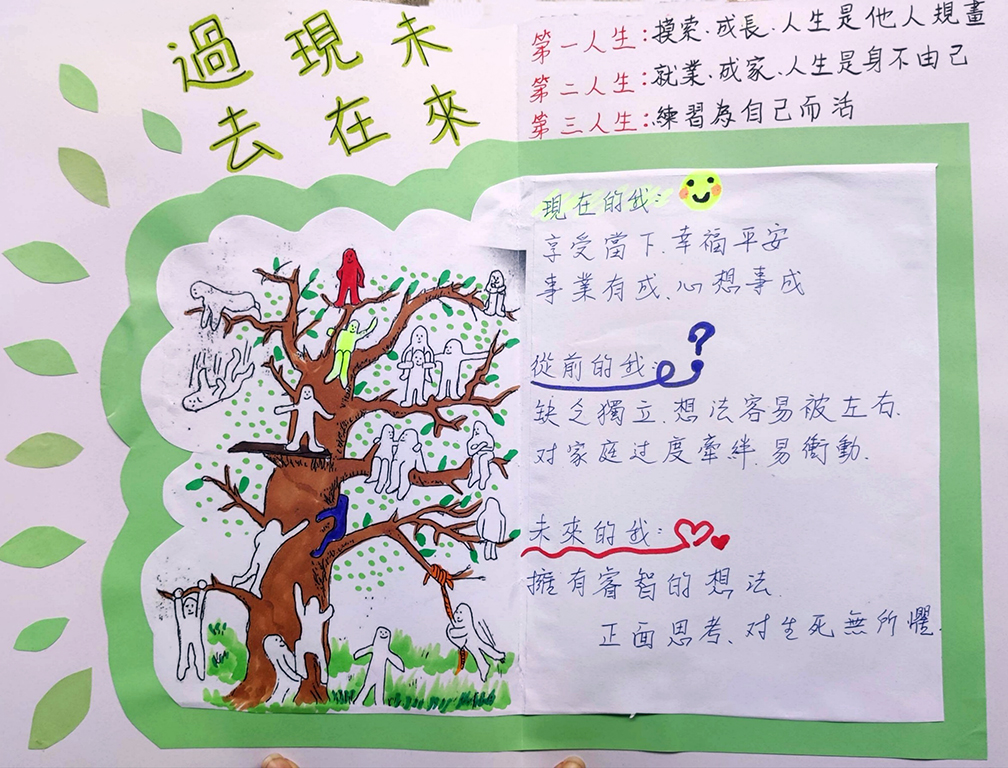 過現未
去在來
第一人生:摸索.成長.人生是他人規畫
第二人生:就業.成家.人生是身不由己
第三人生:練習為自己而活
現在的我:
享受當下.幸福平安
事業有成.心想事成
?
從前的我:
缺乏獨立.想法容易被左右.
对家庭过度牽絆.易衝動.
未來的我:
擁有睿智的想法.
正面思考、对生死無所懼.